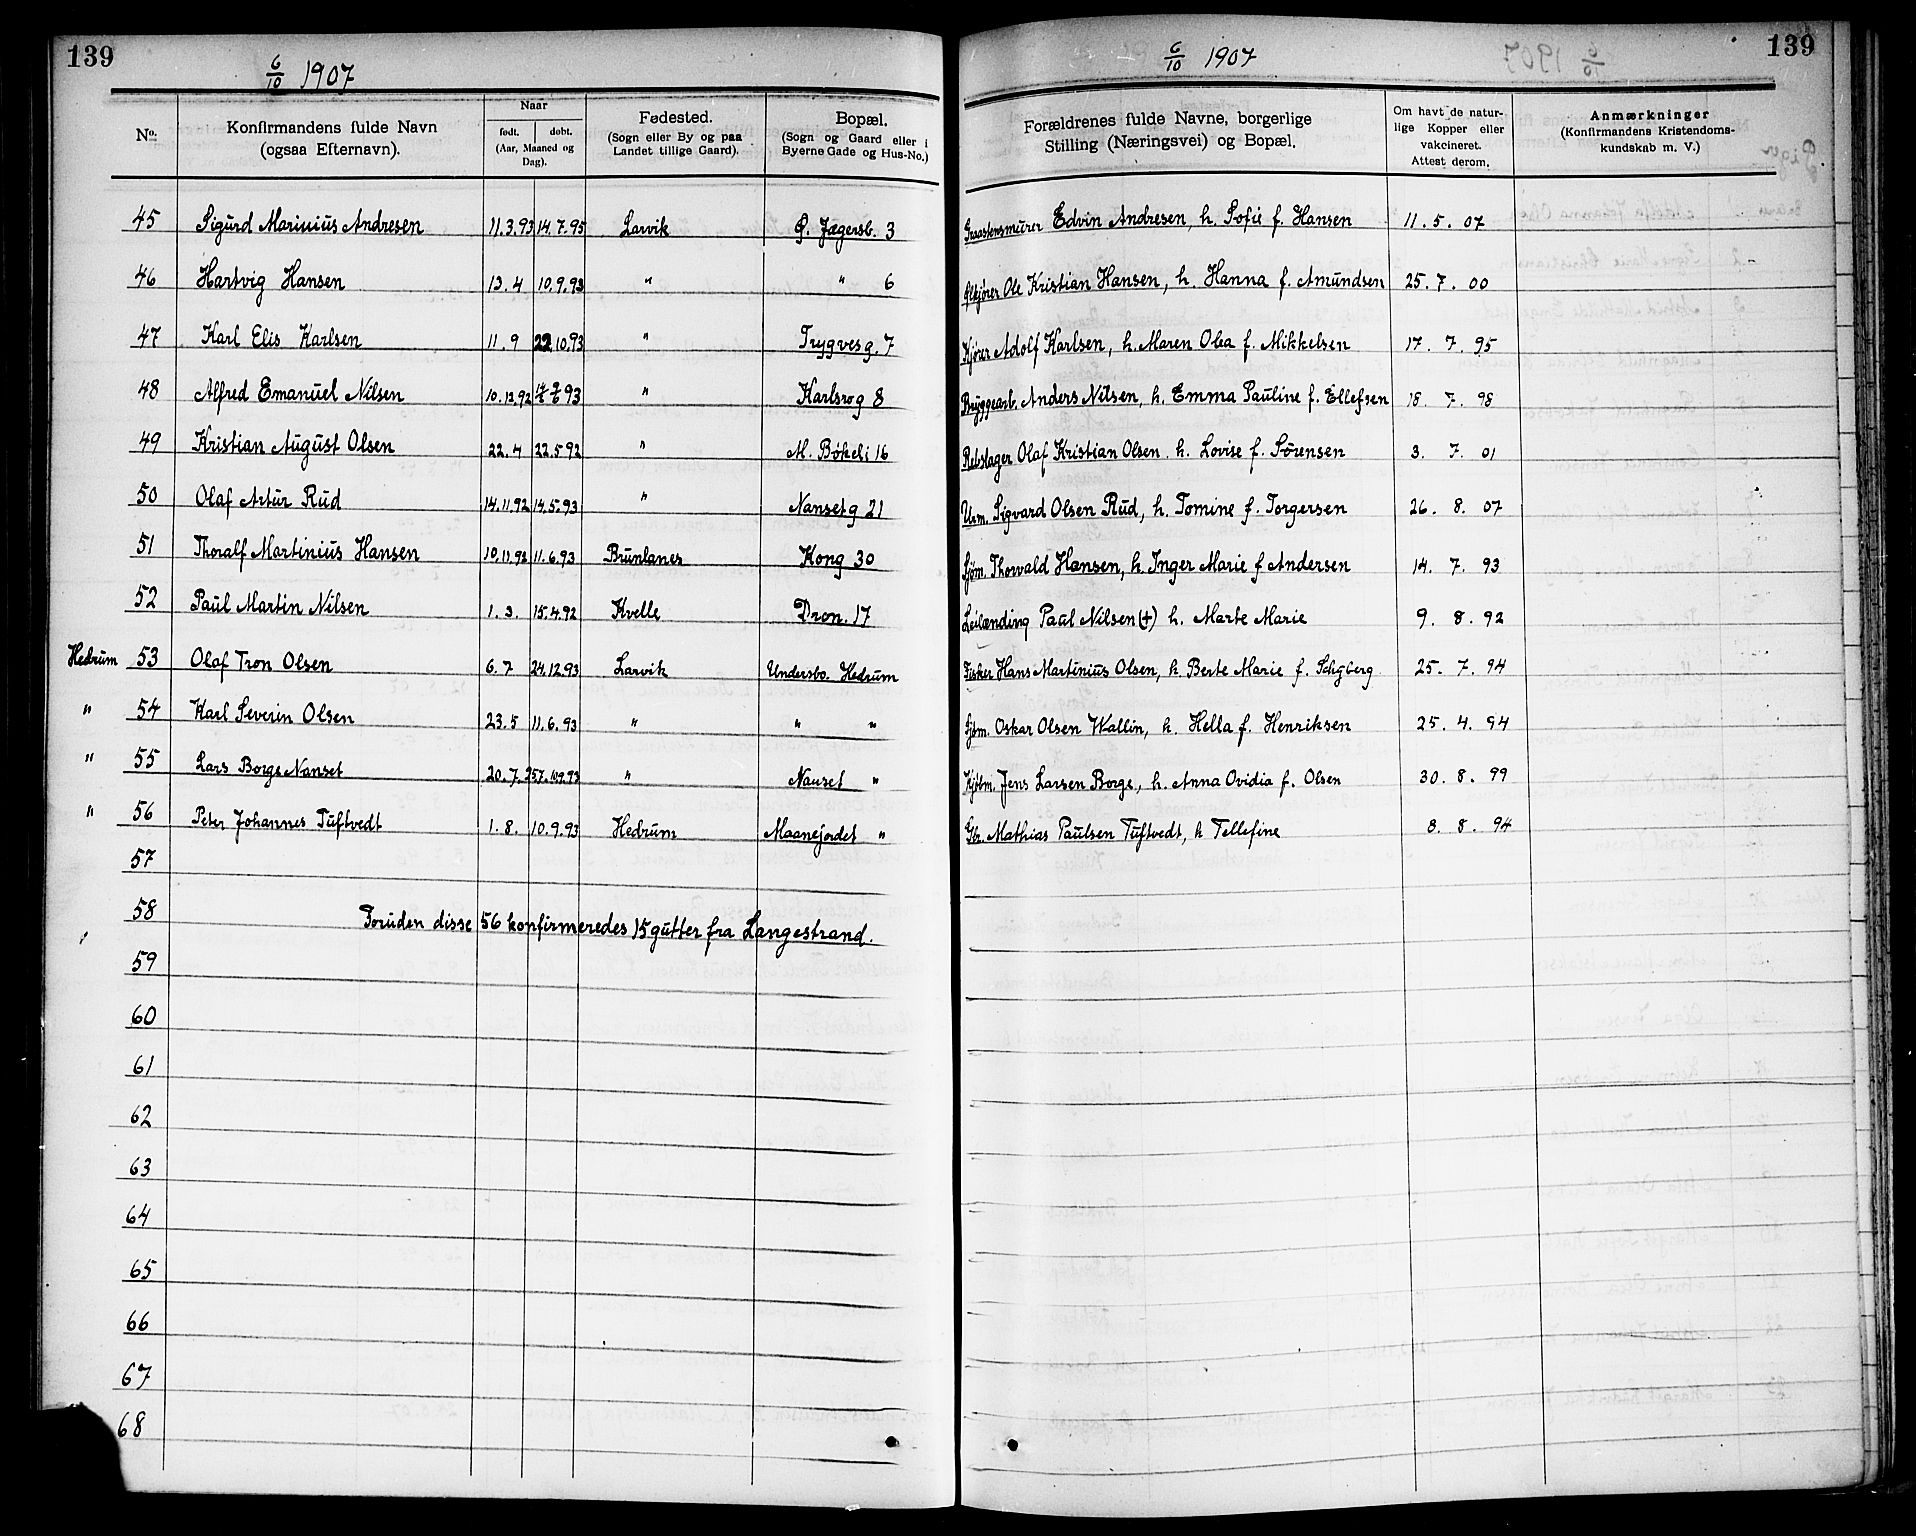 139
6/10 1907
No.
Konfirmandens fulde Navn (ogsaa Efternavn).
Naar
født. døbt.
(Aar, Maaned og Dag).
Fødested.
(Sogn eller By og paa Landet tillige Gaard).
Bopæl.
(Sogn og Gaard eller i Byerne Gade og Hus-No.)
45 Sigurd Marinius Andresen 11.3.93 14.7.95 Larvik Ø. Jægersb. 3
46 Hartvig Hansen 13.4 10.9.93 " " 6
47 Karl Elis Karlsen 11.9 22.10.93 " Trygvesg. 7
48 Alfred Emanuel Nilsen 10.12.92 93 " Karlsrog 8
49 Kristian August Olsen 22.4 22.5.92 " M. Bøkeli 16
50 Olaf Artur Rud 14.11.92 14.5.93 " Nansetg 21
51 Thoralf Martinius Hansen 10.11.92 11.6.93 Brunlanes Kong 30
52 Paul Martin Nilsen 1.3. 15.4.92 Kvelle Dron. 17
Hedrum 53 Olaf Tron Olsen 6.7 24.12.93 Larvik Undersbo. Hedrum
" 54 Karl Severin Olsen 23.5 11.6.93 " " "
" 55 Lars Borge Nanset 20.7. " Nanset "
" 56 Peter Johannes Tuftvedt 1.8. 10.9.93 Hedrum Maanejordet "
57
58 Foruden disse 56 konfirmeredes 15 gutter fra Langestrand.
59
60
61
62
63
64
65
66
67
68
139
6/10 1907
Forældrenes fulde Navne, borgerlige Stilling (Næringsvei) og Bopæl.
Om havt de naturlige Kopper eller vakcineret. Attest derom.
Anmærkninger
(Konfirmandens Kristendomskundskab m. V.)
Graastensmurer Edvin Andresen, h. Sofie f. Hansen 11.5.07
Ølkjører Ole Kristian Hansen, h. Hanna f. Amundsen 25.7.00
Kjører Adolf Karlsen, h. Maren Olea f. Mikkelsen 17.7.95
Bryggearb. Anders Nilsen, h. Emma Pauline f. Ellefsen 18.7.98
Rebslager Olaf Kristian Olsen h. Lovise f. Sørensen 3.7.01
Urm. Sigvard Olsen Rud, h. Tomine f. Torgersen 26.8.07
Sjøm. Thorvald Hansen, h. Inger Marie f Andersen 14.7.93
Leilænding Paul Nilsen (+) h. Marte Marie 9.8.92
Fisker Hans Martinius Olsen, h. Berte Marie f. Schyberg 25.7.94
Sjøm. Oskar Olsen Wallin, h. Hella f. Henriksen 25.4.94
Kjøbm. Jens Larsen Borge, h. Anna Ovidia f. Olsen 30.8.99
Gbr. Mathias Paulsen Tuftvedt, h Tellefine 8.8.94